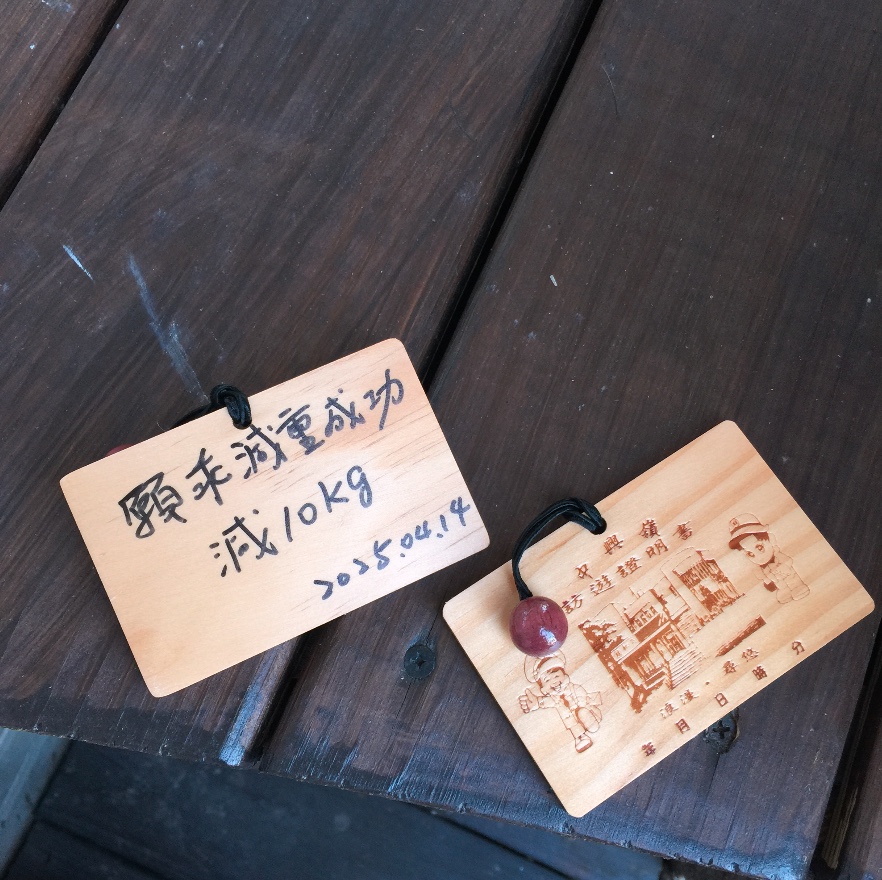 願乘減重成功
減10kg
2025.04.14
中興嶺
訪遊證明書
浪漫·尋悠
年 月 日 時 分